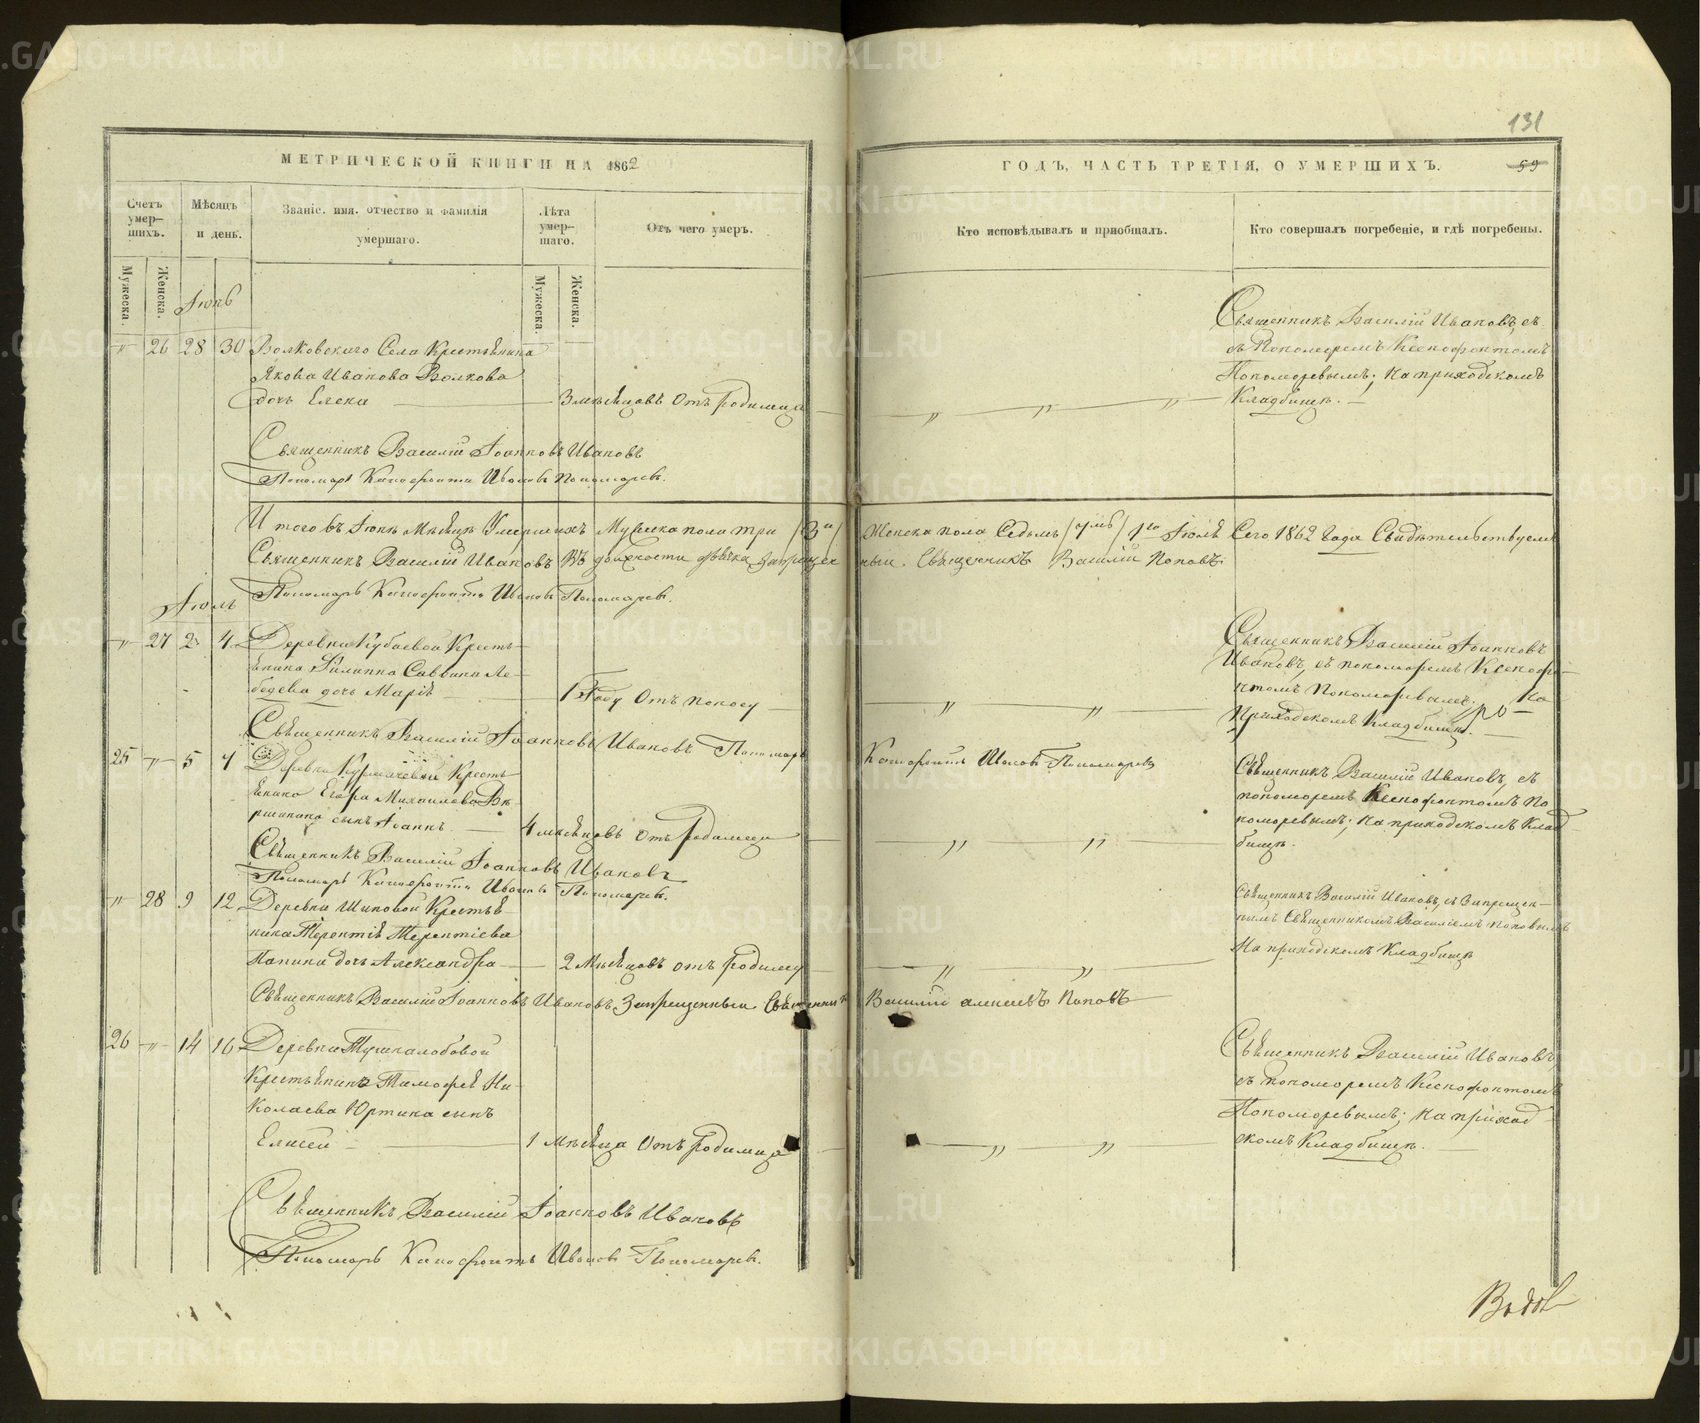 131
МЕТРИЧЕСКОЙ КНИГИ НА 1862
ГОДЪ, ЧАСТЬ ТРЕТІЯ, О УМЕРШИХЪ.
59
Счетъ умер-шихъ.
Мѣсяцъ и день.
Званіе. имя. отчество и фамилія умершаго.
Лѣта умер-шаго.
Отъ чего умеръ.
Кто исповѣдывалъ и пріобщалъ.
Кто совершалъ погребеніе, и гдѣ погребены.
Мужеска.
Женска.
Мужеска.
Женска.
Іюнь
„ 26 28 30 Волковскаго Села Крестьянина
Якова Иванова Волкова
дочь Елена 3 мѣсяцовъ Отъ Родимца
„ „ „
Священникъ Василій Ивановъ, съ
Пономаремъ Ксенофонтомъ
Пономоревымъ; на приходскомъ
Кладбищѣ.
Священникъ Василій Іоанновъ Ивановъ
Пономарь Ксенофонтъ Ивановъ Пономаревъ.
Итого въ Іюнѣ Мѣсяцѣ Умершихъ Мужеска пола три /3и/ Женска пола Седьмь /7мь/ 1го Іюля Сего 1862 Года Свидѣтельствуемъ
Священникъ Василій Ивановъ Въ должности дьячка запрещен ный Священникъ Василій Поповъ
Пономарь Ксенофонтъ Ивановъ Пономаревъ.
Іюль
„ 27 2 4 Деревни Кубаевой Кресть-
янина Филиппа Саввина Ле-
бедева дочь Марія 1 Году Отъ поносу
„ „
Священникъ Василій Іоанновъ
Ивановъ, съ пономоремъ Ксенофо-
нтомъ Пономоревымъ; на
Приходскомъ Кладбищѣ.
Священникъ Василій Іоанновъ Ивановъ Пономарь Ксенофонтъ Ивановъ Пономаревъ
25 „ 5 7 Деревни Крестья-
янина Егора Михаилова Ве-
ршинина сынъ Іоаннъ 4 мѣсяцовъ Отъ Родимца
„ „
Священникъ Василій Ивановъ, съ
пономоремъ Ксенофонтомъ По
номоревымъ; на приходскомъ Клад
бищѣ.
Священникъ Василій Іоанновъ Ивановъ
Пономарь Ксенофонтъ Ивановъ Пономаревъ.
„ 28 9 12 Деревни Шиповой Крестья-
нина Терентія Терентіева
Папина дочь Александра 2 Мѣсяцовъ отъ Родимцу
„ „
Священникъ Василій Ивановъ, съ Запрещен-
нымъ Священникомъ Василіемъ Поповымъ
На приходскомъ Кладбищѣ
Священникъ Василій Іоанновъ Ивановъ Запрещенный Священникъ Василій Алексѣевъ Поповъ
26 „ 14 16 Деревни Тушкалобовой
Крестьянина Тимофея Ни-
колаева Юртина сынъ
Елисей 1 Мѣсяца Отъ Родимца
„ „
Священникъ Василій Ивановъ,
съ пономоремъ Ксенофонтомъ
Пономоревымъ; на приход
скомъ Кладбищѣ.
Священникъ Василій Іоанновъ Ивановъ
Пономарь Ксенофонтъ Ивановъ Пономаревъ.
METRIKI.GASO-URAL.RU